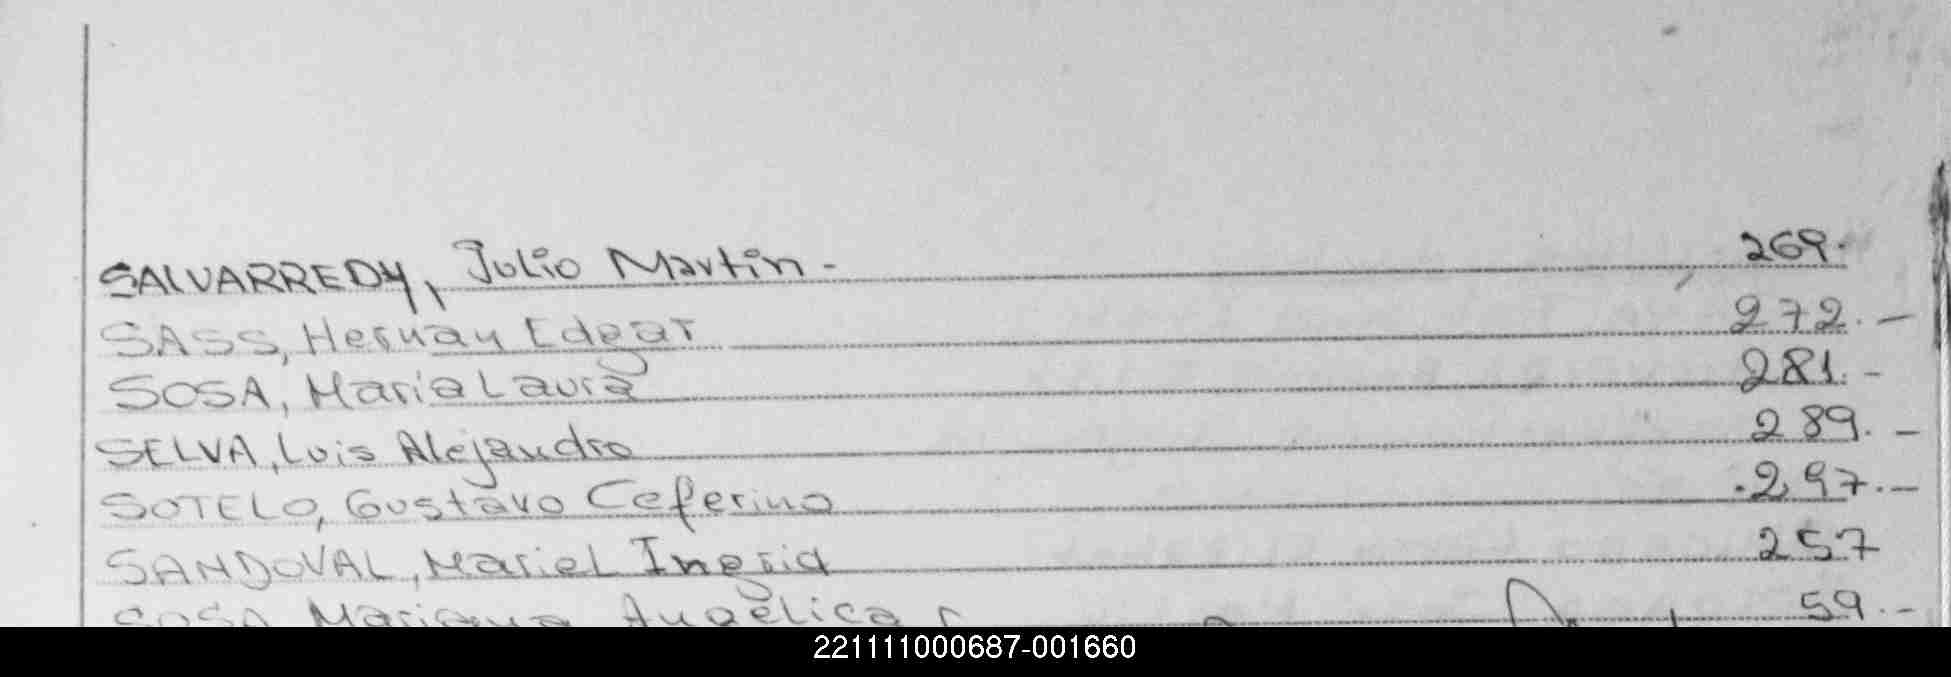 SALVARREDY, Julio Martin - 269.
SASS, Hernan Edgar 272. -
SOSA, Maria Laura 281. -
SELVA, Luis Alejandro 289. -
SOTELO, Gustavo Ceferino .297. -
SANDOVAL, Mariel Ingrid 257
SOSA Mariana Angelica 59. -
221111000687-001660